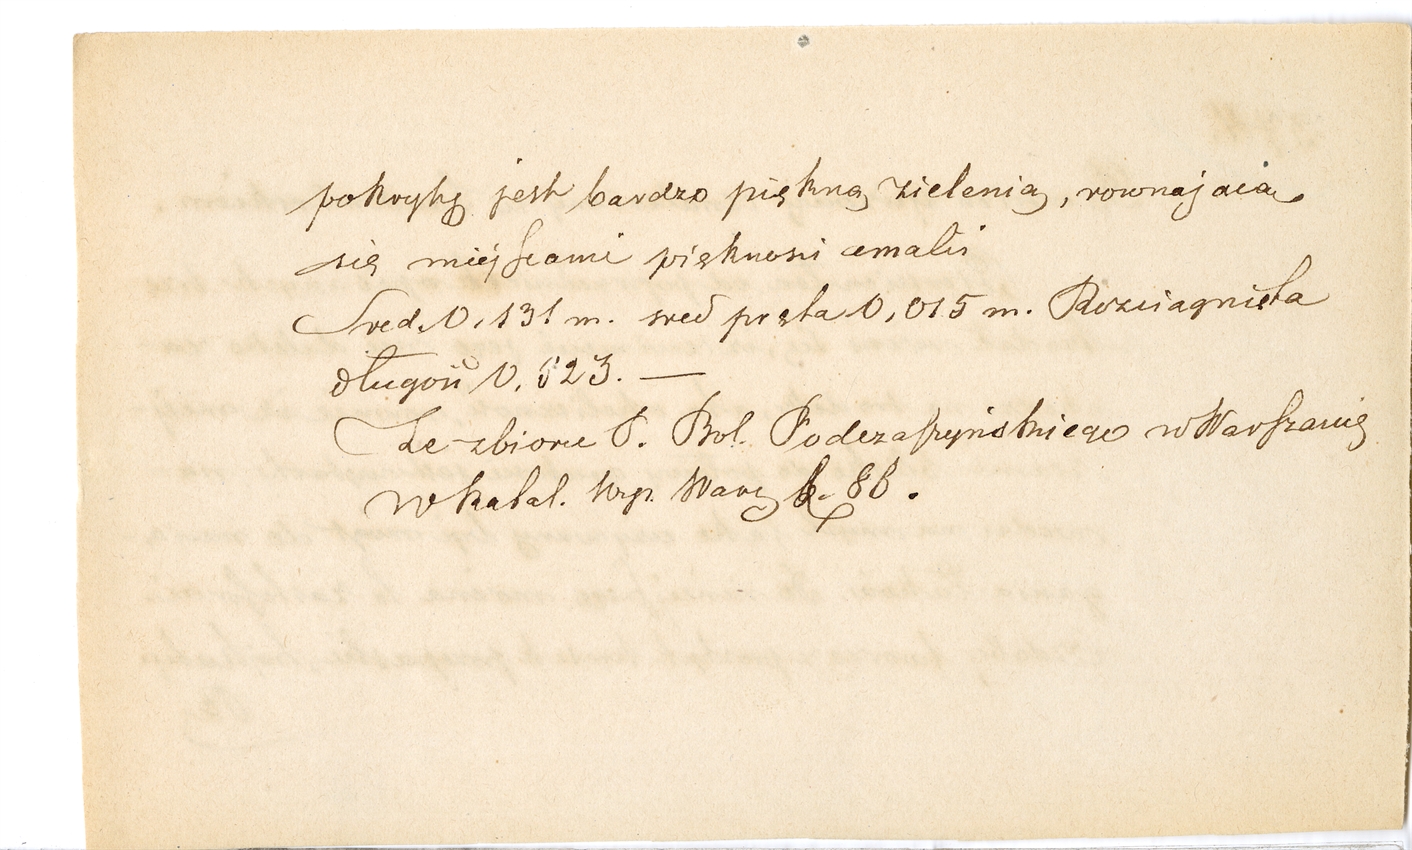 pokrytą jest bardzo piękną zielenią, rownającą
się miejscami piękności emalii
Sred. 0,131 m. sred pręta 0,015 m. Rozciągnięta
długość 0,523. —
Ze zbioru P. Bol. Podczaszyńskiego w Warszawie
w Katal. Wyp. Warsz 86.